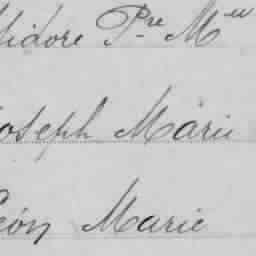 Isidore Pre Meu
Joseph Marie
Léon Marie